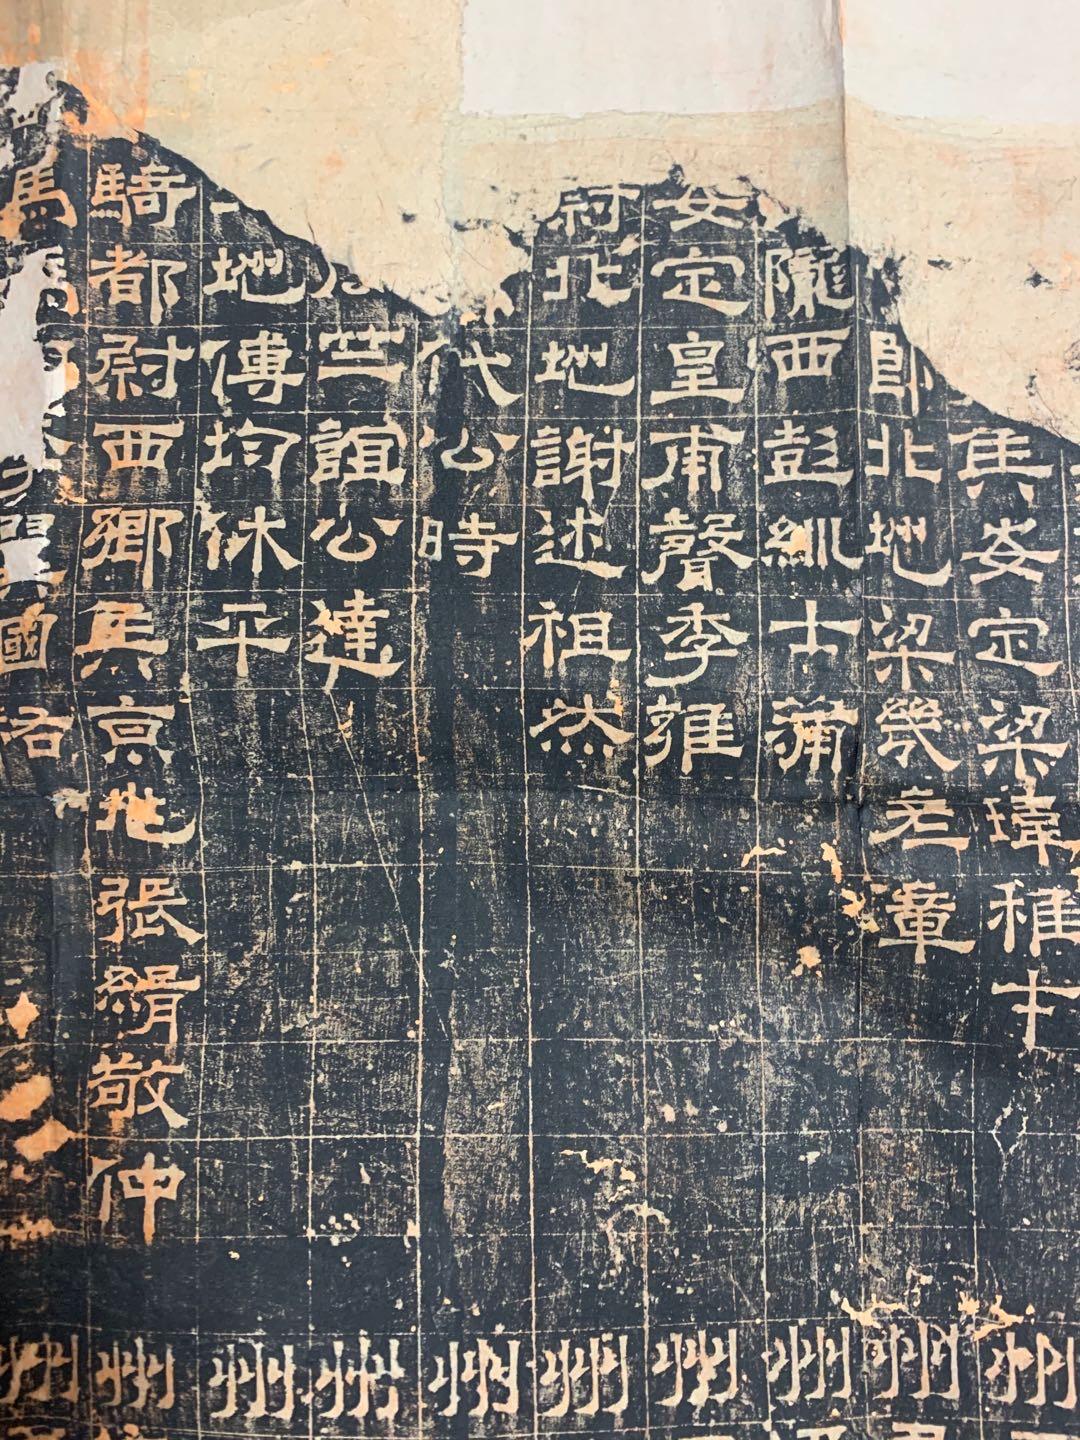 矦安定梁瑋稚十
郎北地梁幾老章
隴西彭紃士蒲
安定皇甫聲季雍
祠北地謝述祖然
代公時
竺誼公達
地傅均休平
騎都尉西鄉矦京兆張緝敬仲
馬
國
州州州州州州州州州州